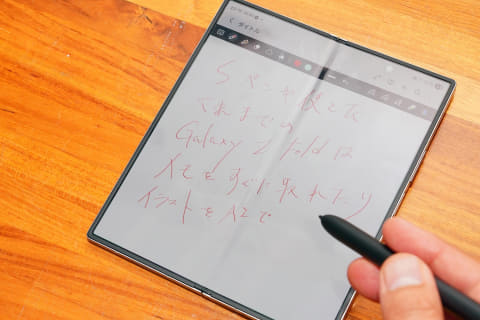 タイトル
Sペンが使えた
これまでの
Galaxy Z Foldは
メモをすぐに取れたり
イラストを